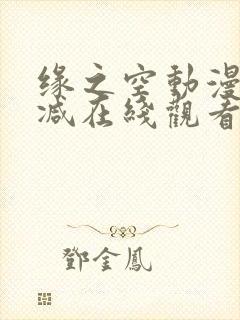 缘之空動漫
减在綫觀看
鄧金鳳